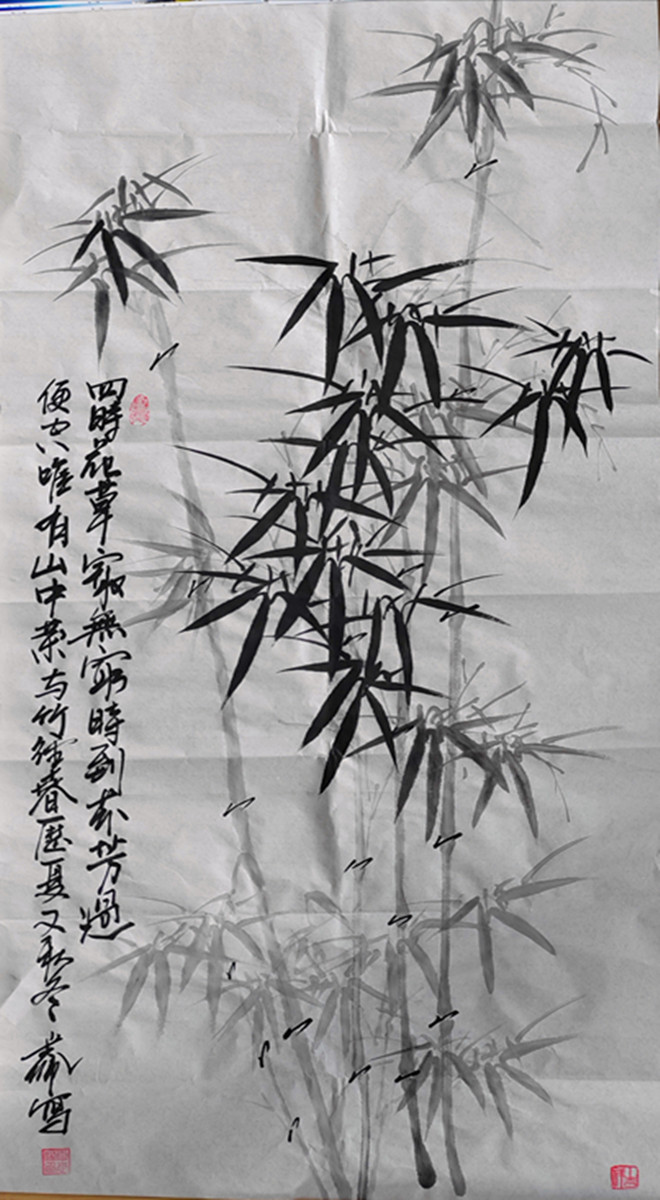 四時花草最無窮時到芬芳過
便空唯有山中蘭与竹經春歷夏又秋冬 寫